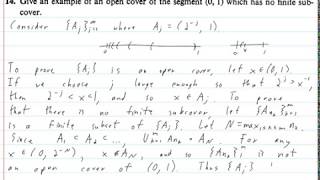 14. Give an example of an open cover of the segment (0, 1) which has no finite sub-
cover.
Consider {A_j}_{j=1}^∞ where A_j = (2^{-j}, 1).
To prove {A_j} is an open cover, let x ∈ (0,1).
If we choose j large enough so that 2^j > x^{-1},
then 2^{-j} < x < 1, and so x ∈ A_j. To prove
that there is no finite subcover, let {A_{n_k}}_{k=1}^m
is a finite subset of {A_j}. Let N = max_{1≤k≤m} n_k.
Since A_1 ⊂ A_2 ⊂ ... U A_{n_k} = A_N. For any
x ∈ (0, 2^{-N}), x ∉ A_N, and so {A_{n_k}}_1^m is not
an open cover of (0, 1). Thus {A_j}